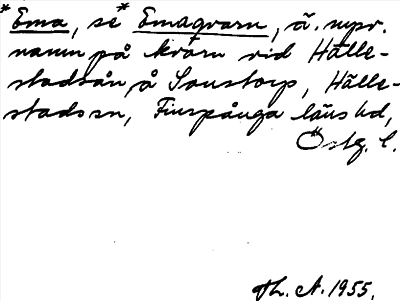 *Ema, se *Emaqvarn, ä. uppr.
namn på kvarn vid Hälle-
stadsån å Sonstorp, Hälle-
stads sn, Finspånga läns hd,
Östg. l.
Th. A. 1955.